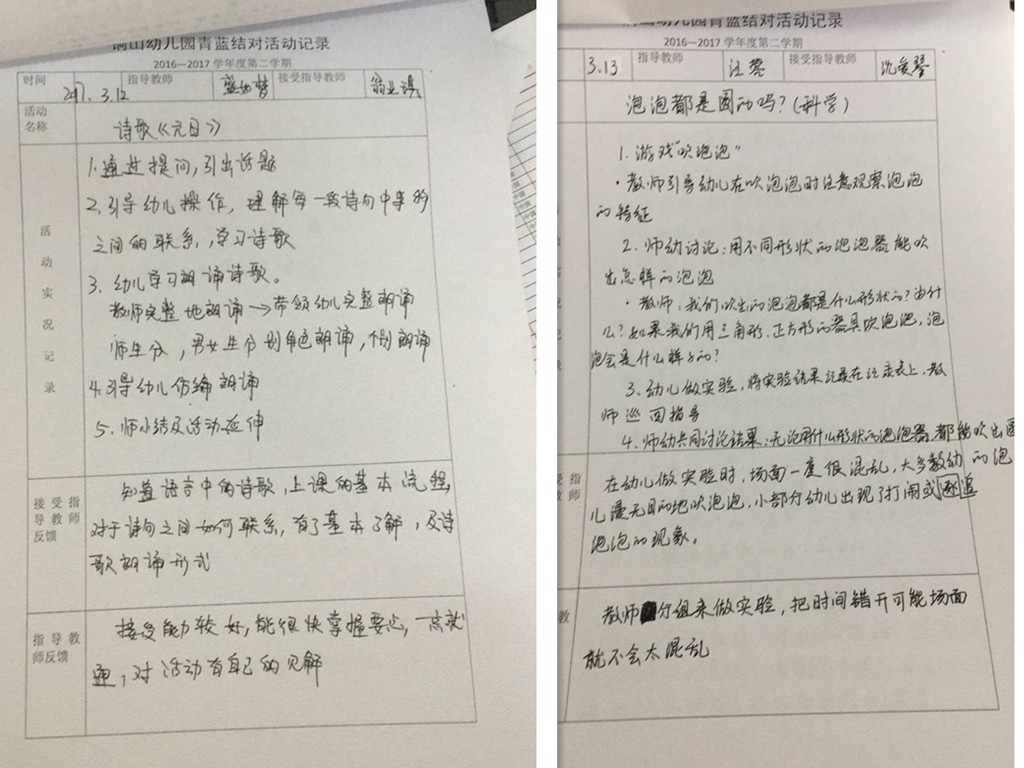 山幼儿园青蓝结对活动记录
2016—2017 学年度第二学期
时间
3.12
指导教师
接受指导教师
活动
名称
诗歌《元日》
活动实况记录
1.通过提问,引出话题
2.引导幼儿操作,理解每一致诗句中事物
之间的联系,学习诗歌
3. 幼儿学习朗诵诗歌。
教师完整地朗诵→带领幼儿完整朗诵
师生分,男女生分别角色朗诵,个别朗诵
4.引导幼儿仿编朗诵
5. 师小结及活动延伸
接受指
导教师
反馈
知道语言中的诗歌,上课的基本流程,
对于诗句之间如何联系,有了基本了解,及诗
歌朗诵形式
指导教
师反馈
接受能力较好,能很快掌握要点,一点就
通,对活动有自己的见解
山幼儿园青蓝结对活动记录
2016—2017 学年度第二学期
3.13
指导教师
汪蓉
接受指导教师
沈爱琴
泡泡都是圆的吗?(科学)
1. 游戏"吹泡泡"
·教师引导幼儿在吹泡泡时注意观察泡泡
的特征
2. 师幼讨论:用不同形状的泡泡器能吹
出怎样的泡泡
·教师:我们吹出的泡泡都是什么形状的?为什
么?如果我们用三角形、正方形的器具吹泡泡,泡
泡会是什么样子的?
3. 幼儿做实验,将实验结果记录在记录表上,教
师巡回指导
4. 师幼共同讨论结果:无论用什么形状的泡泡器,都能吹出圆
的泡
受指
教师
在幼儿做实验时,场面一度很混乱,大多数幼
儿漫无目的地吹泡泡,小部分幼儿出现了打闹或逐追
泡泡的现象。
教
教师分组来做实验,把时间错开可能场面
就不会太混乱